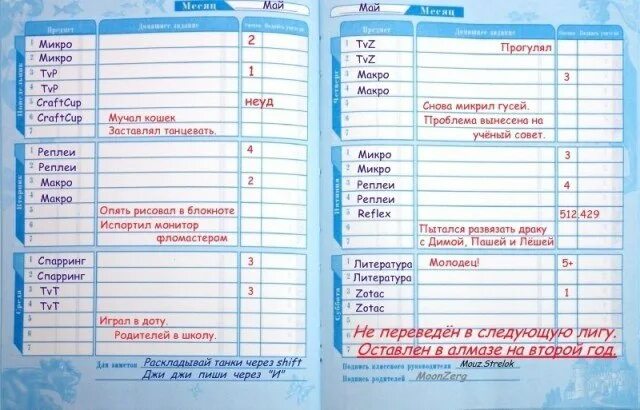 Месяц Май
Предмет Домашнее задание Оценка Подпись учителя
Понедельник
1 Микро 2
2 Микро
3 TvP 1
4 TvP
5 CraftCup неуд
6 CraftCup Мучал кошек
7 Заставлял танцевать.
Вторник
1 Реплеи 4
2 Реплеи
3 Макро 2
4 Макро
5 Опять рисовал в блокноте
6 Испортил монитор
7 фломастером
Среда
1 Спарринг 3
2 Спарринг
3 TvT 3
4 TvT
5 Играл в доту.
6 Родителей в школу.
7
Для заметок Раскладывай танки через shift
Джи джи пиши через "И"
Май Месяц
Предмет Домашнее задание Оценка Подпись учителя
Четверг
1 TvZ Прогулял
2 TvZ
3 Макро 3
4 Макро
5 Снова микрил гусей.
6 Проблема вынесена на
7 учёный совет.
Пятница
1 Микро 3
2 Микро
3 Реплеи 4
4 Реплеи
5 Reflex 512.429
6 Пытался развязать драку
7 с Димой, Пашей и Лёшей
Суббота
1 Литература Молодец! 5+
2 Литература
3 Zotac 1
4 Zotac
5
6 Не переведён в следующую лигу.
7 Оставлен в алмазе на второй год.
Подпись классного руководителя Mouz.Strelok
Подпись родителей MoonZerg